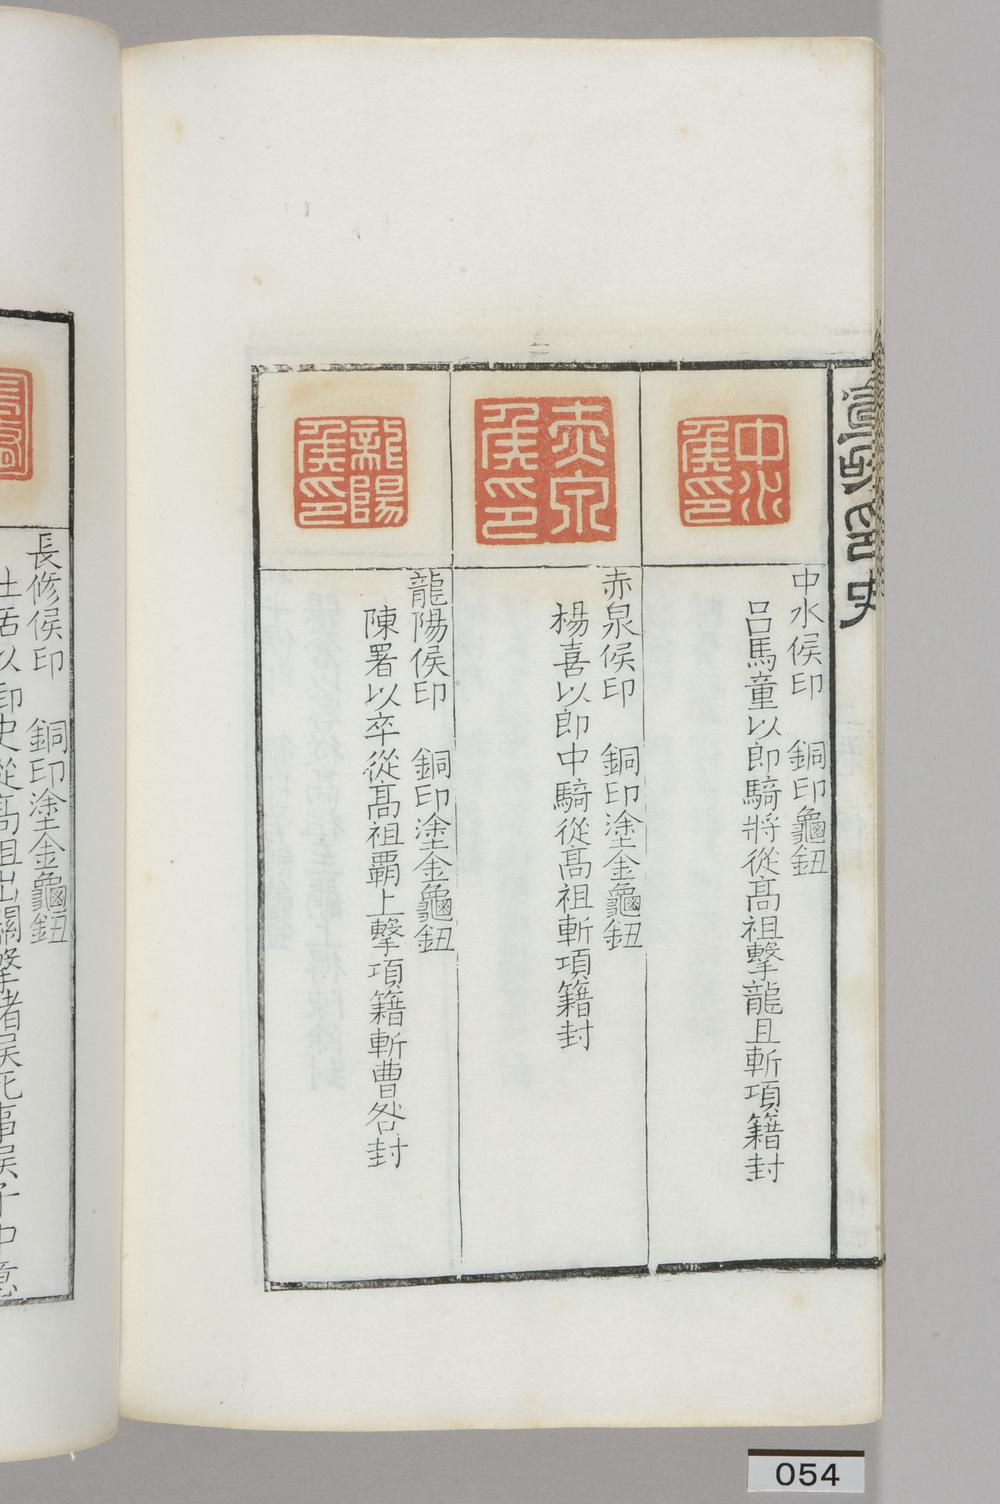 中水侯印
中水侯印　銅印龜鈕
呂馬童以郎騎將從高祖擊龍且斬項籍封
赤泉侯印
赤泉侯印　銅印塗金龜鈕
楊喜以郎中騎從高祖斬項籍封
龍陽侯印
龍陽侯印　銅印塗金龜鈕
陳署以卒從高祖霸上擊項籍斬曹咎封
長修侯印　銅印塗金龜鈕
以御史從高祖出關擊諸侯死事侯子中意
054